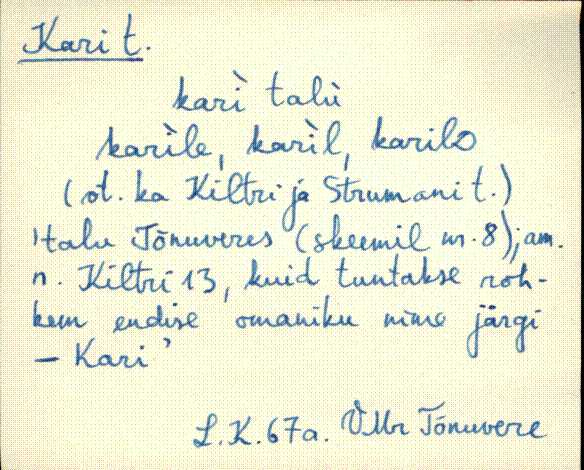 Kari t.
karì talù
karìle, karìl, karilo
(vt. ka Kiltri ja Strumani t.)
'talu Tõnuveres (skeemil nr. 8); am.
n. Kiltri 13, kuid tuntakse roh-
kem endise omaniku nime järgi
– Kari'
L.K. 67a. VMr Tõnuvere